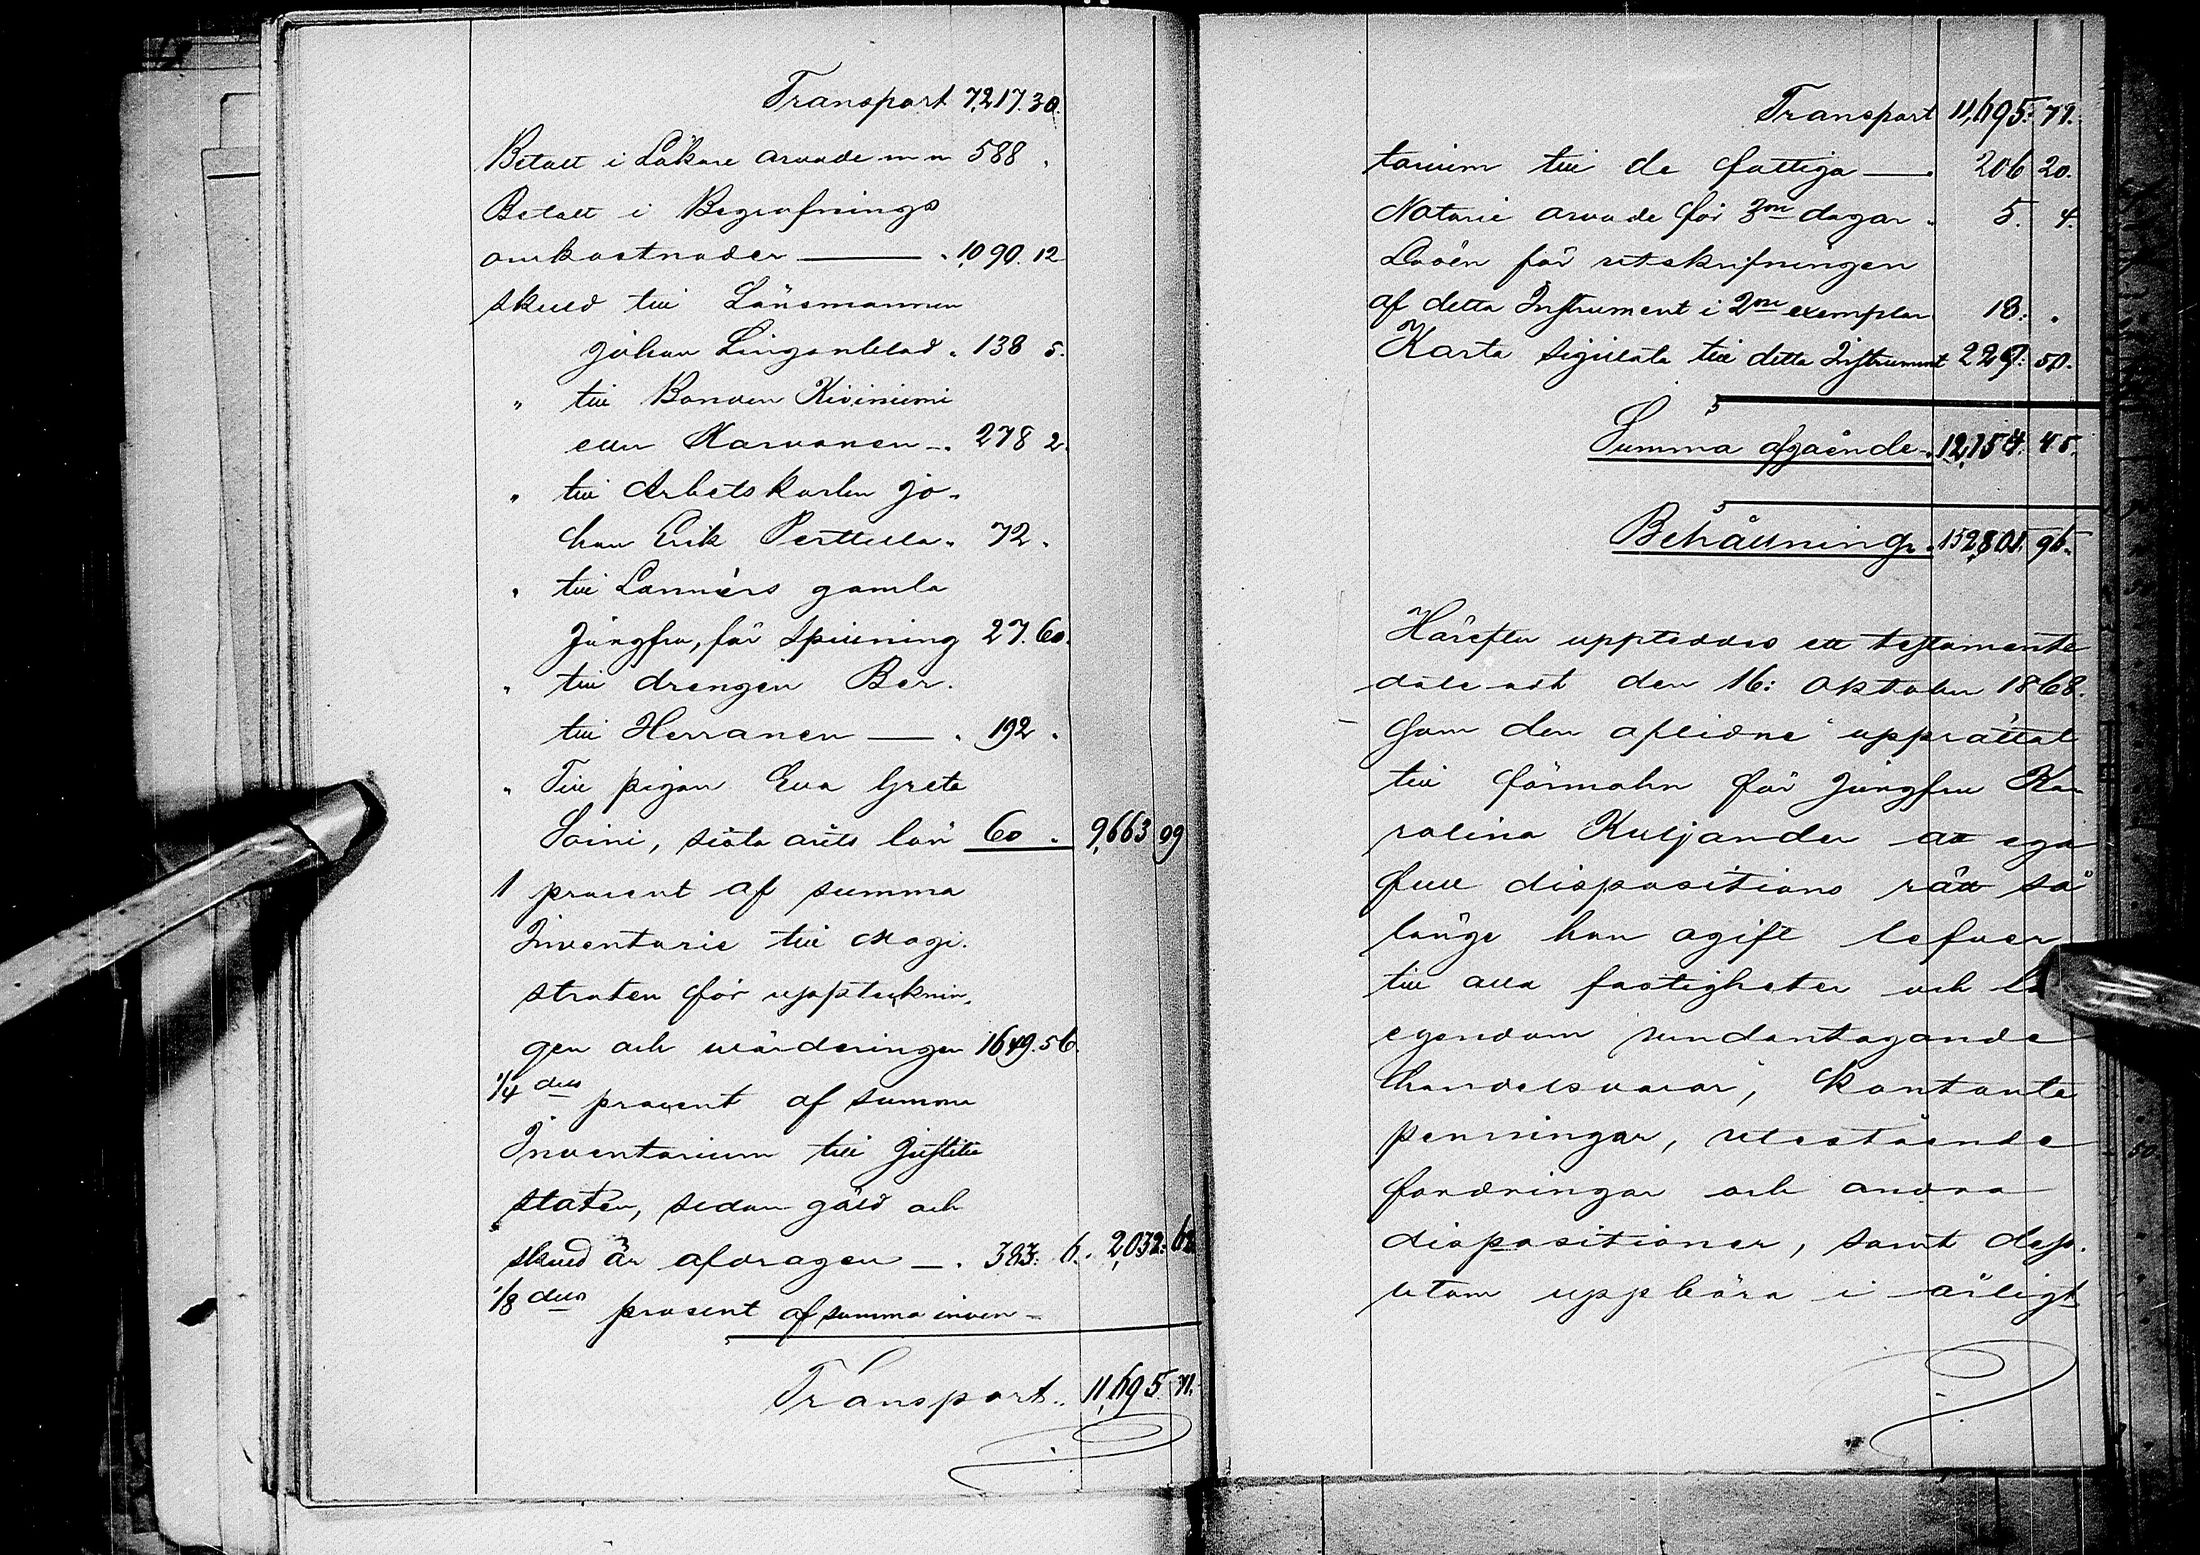 Transport 7,217. 30.
Betalt i Läkare arvode m m 588 .
Betalt i Begrafnings
omkostnader — . 1,090. 12
skuld till Länsmannen
Johan Lingonblad . 138 5.
" till Bonden Kiviniemi
eller Karvonen — . 278 2.
" till Arbetskarlen Jo-
han Erik Perttula . 72 .
" till Lannérs gamla
Jungfru, för spinning 27. 60.
" till drengen Ber-
till Herranen — . 192 .
" Till pigan Eva Greta
Soini, sista årets lön 60 . 9,663 09
1 procent af summa
Inventarie till Magi-
straten för uppteknin-
gen och värderingen 1649. 56.
1/4 dels procent af summa
Inventarium till Justitie
staten, sedan gäld och
skuld är afdragen — . 383: 6. 2,032: 62.
1/8 dels procent af summa inven-
Transport . 11,695. 71.
Transport 11,695: 71.
tarium till de fattiga — . 206 20.
Notarie arvode för 3ne dagar . 5. 4.
Lösen för utskrifningen
af detta Instrument i 2ne exemplar 18: .
Karta sigillata till detta Instrument 229: 50.
Summa afgående . 12,154. 45.
Behållning . 152,801. 96.
Härefter uppteddes ett testamente
daterat den 16: Oktober 1868.
som den aflidne upprättat
till förmohn för Jungfru Ka-
rolina Kuljander att ega
full dispositions rätt så
länge hon ogift lefver
till alla fastigheter och
egendom undantagande
handelsvaror, kontanta
penningar, utestående
fordringar och andra
dispositioner, samt dess-
utom uppbära i årligt